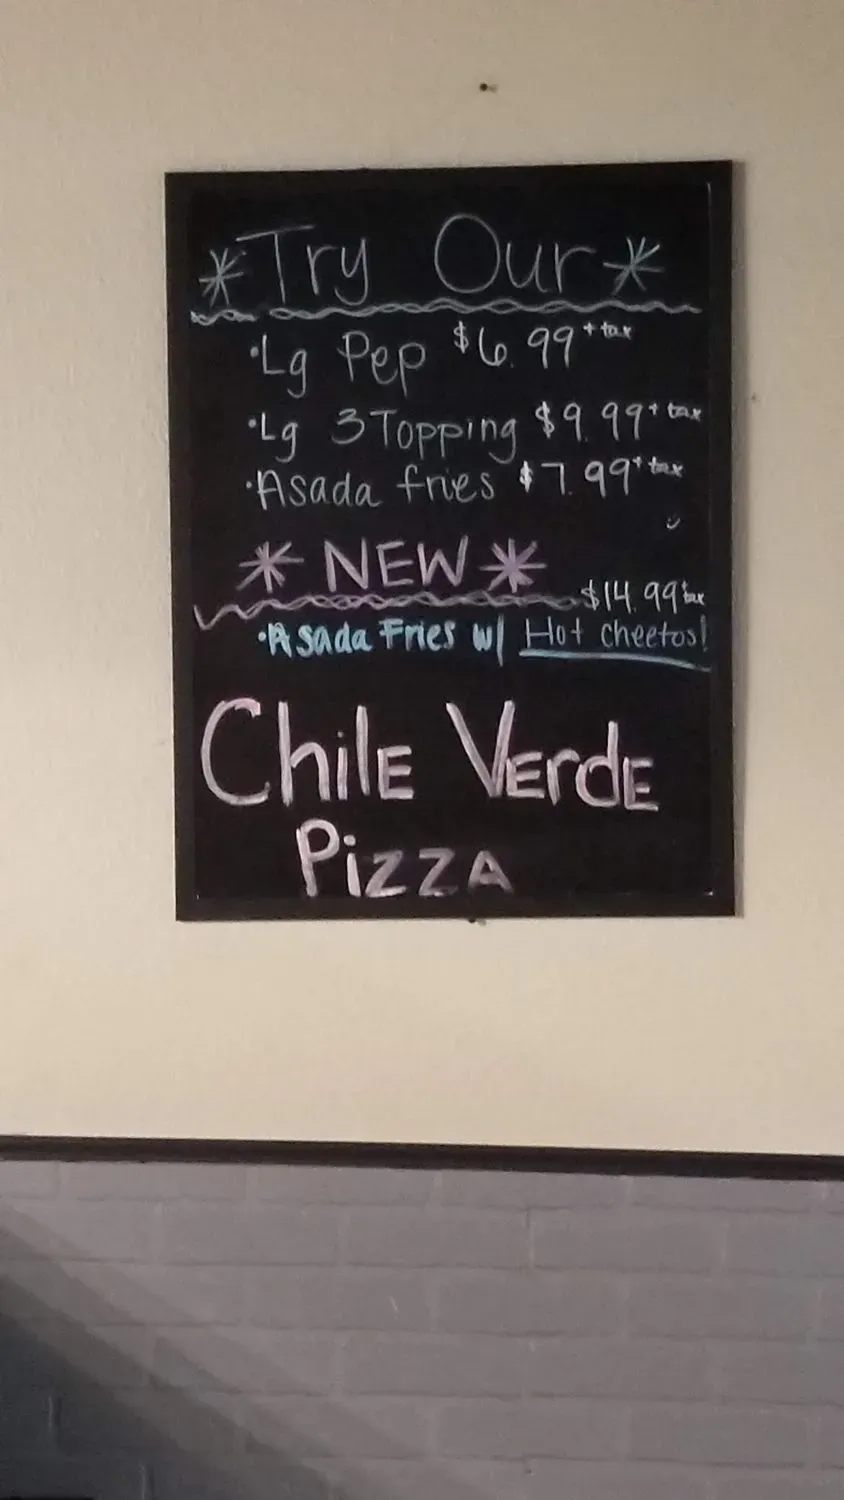 *Try Our*
·Lg Pep $6.99 + tax
·Lg 3 Topping $9.99 + tax
·Asada fries $7.99 + tax
* NEW *
$14.99 + tax
·Asada Fries w/ Hot Cheetos!
Chile Verde
Pizza